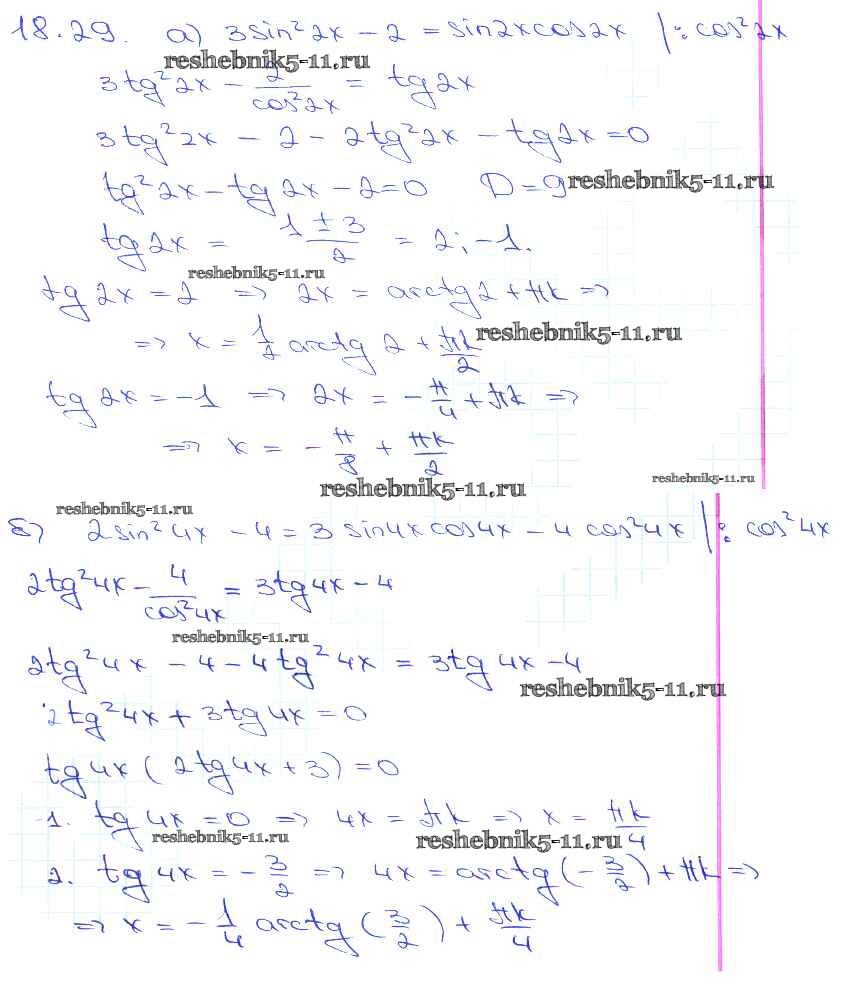 18.29. а) 3sin²2x - 2 = sin2xcos2x |: cos²2x
reshebnik5-11.ru
3tg²2x - 2/cos²2x = tg2x
3tg²2x - 2 - 2tg²2x - tg2x = 0
tg²2x - tg2x - 2 = 0 D = 9 reshebnik5-11.ru
tg2x = (1 ± 3)/2 = 2; -1.
reshebnik5-11.ru
tg2x = 2 => 2x = arctg2 + πk =>
=> x = 1/2 arctg 2 + πk/2 reshebnik5-11.ru
tg2x = -1 => 2x = -π/4 + πk =>
=> x = -π/8 + πk/2
reshebnik5-11.ru reshebnik5-11.ru
reshebnik5-11.ru
б) 2sin²4x - 4 = 3sin4xcos4x - 4cos²4x |: cos²4x
2tg²4x - 4/cos²4x = 3tg4x - 4
reshebnik5-11.ru
2tg²4x - 4 - 4tg²4x = 3tg4x - 4
reshebnik5-11.ru
2tg²4x + 3tg4x = 0
tg4x(2tg4x + 3) = 0
1. tg4x = 0 => 4x = πk => x = πk/4
reshebnik5-11.ru reshebnik5-11.ru
2. tg4x = -3/2 => 4x = arctg(-3/2) + πk =>
=> x = -1/4 arctg(3/2) + πk/4